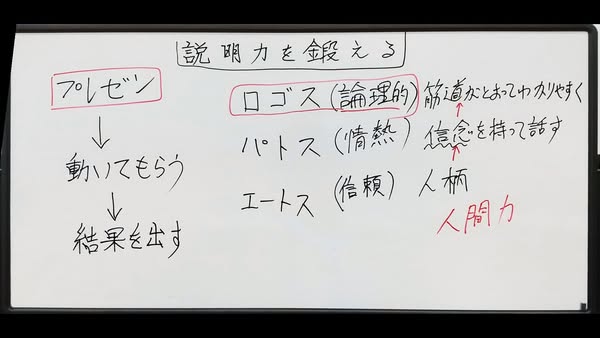 説明力を鍛える
プレゼン
↓
動いてもらう
↓
結果を出す
ロゴス(論理的) 筋道がとおってわかりやすく
パトス(情熱) 信念を持って話す
エートス(信頼) 人柄
人間力